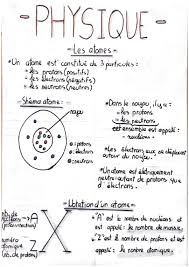 - PHYSIQUE -
- Les atomes -
• Un atome est constitué de 3 particules :
- les protons (positifs)
- les électrons (négatifs)
- les neutrons (neutres)
- Schéma atome :
noyau
• Dans le noyau, il y a :
- les protons
- les neutrons
cet ensemble est appelé : nucléons
: protons
: électrons
: neutrons
• Les électrons, eux, se déplacent autour du noyau.
• Un atome est électriquement neutre autant de protons que d'électrons.
- Notation d'un atome -
nb de nucléons
A
X
numéro atomique
Z
• "A" est le nombre de nucléons et est appelé : le nombre de masse.
• "Z" est le nombre de protons et est appelé : le nombre atomique.